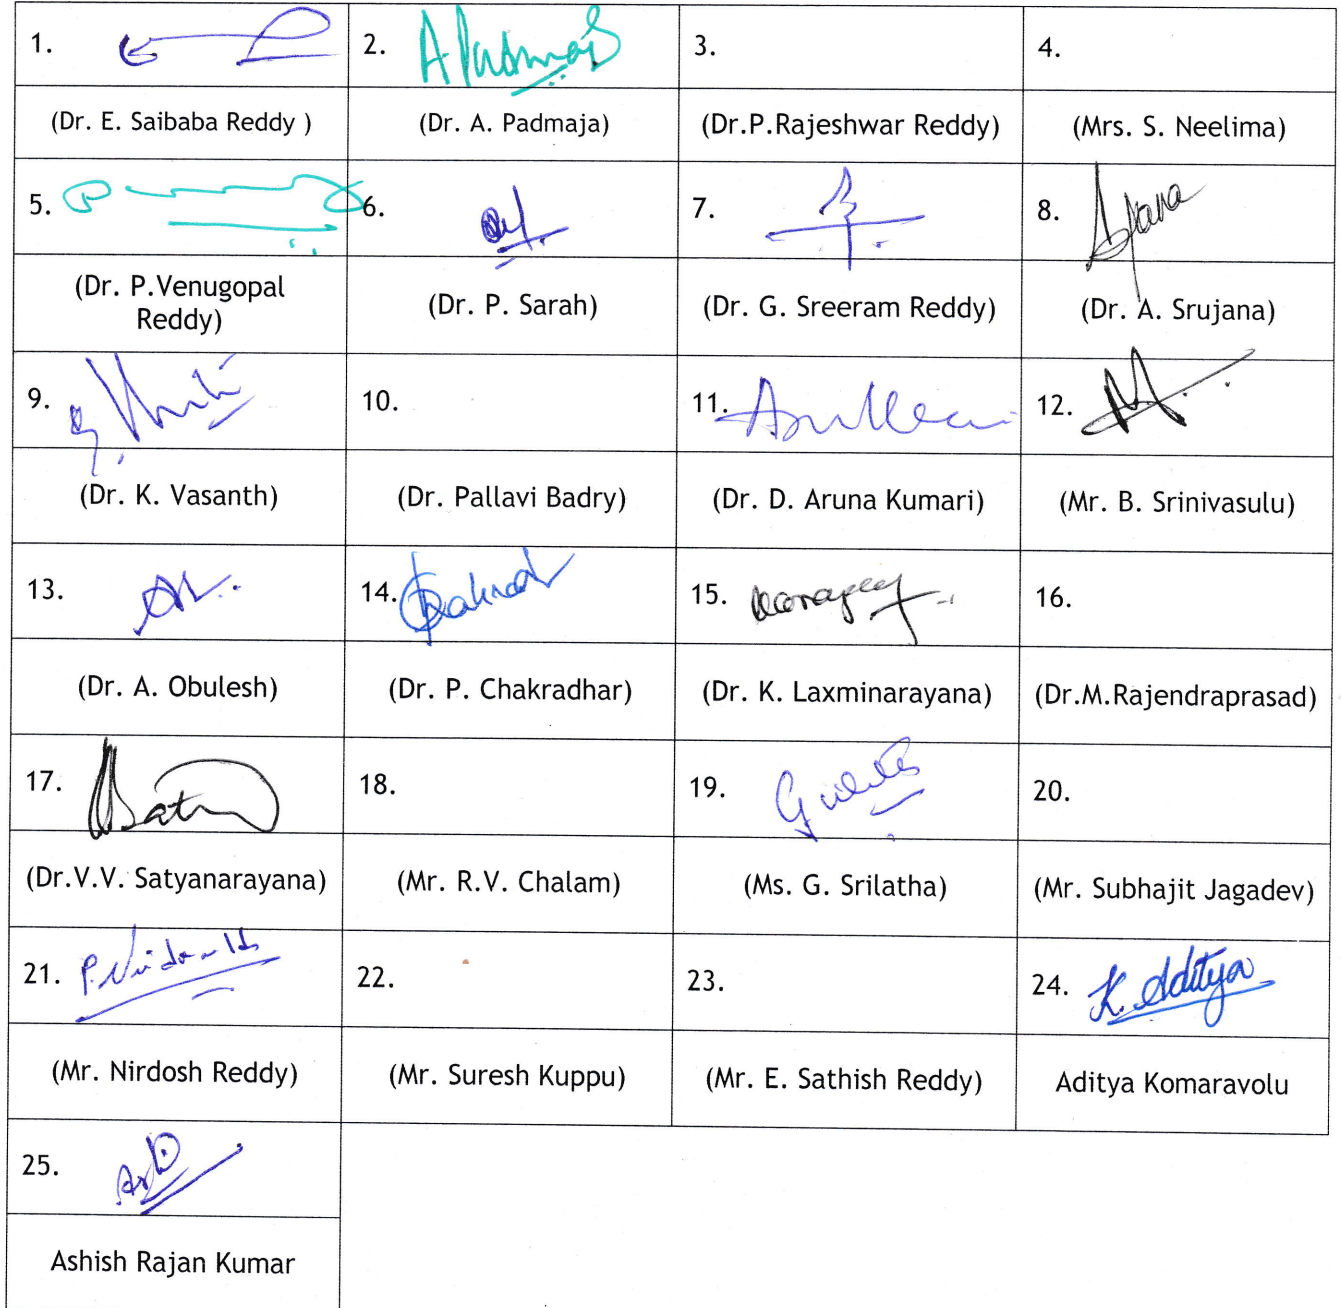 1. 2. A Padmaja 3. 4.
(Dr. E. Saibaba Reddy ) (Dr. A. Padmaja) (Dr.P.Rajeshwar Reddy) (Mrs. S. Neelima)
5. 6. 7. 8.
(Dr. P.Venugopal
Reddy) (Dr. P. Sarah) (Dr. G. Sreeram Reddy) (Dr. A. Srujana)
9. 10. 11. 12.
(Dr. K. Vasanth) (Dr. Pallavi Badry) (Dr. D. Aruna Kumari) (Mr. B. Srinivasulu)
13. 14. 15. 16.
(Dr. A. Obulesh) (Dr. P. Chakradhar) (Dr. K. Laxminarayana) (Dr.M.Rajendraprasad)
17. 18. 19. 20.
(Dr.V.V. Satyanarayana) (Mr. R.V. Chalam) (Ms. G. Srilatha) (Mr. Subhajit Jagadev)
21. 22. 23. 24. K. Aditya
(Mr. Nirdosh Reddy) (Mr. Suresh Kuppu) (Mr. E. Sathish Reddy) Aditya Komaravolu
25.
Ashish Rajan Kumar